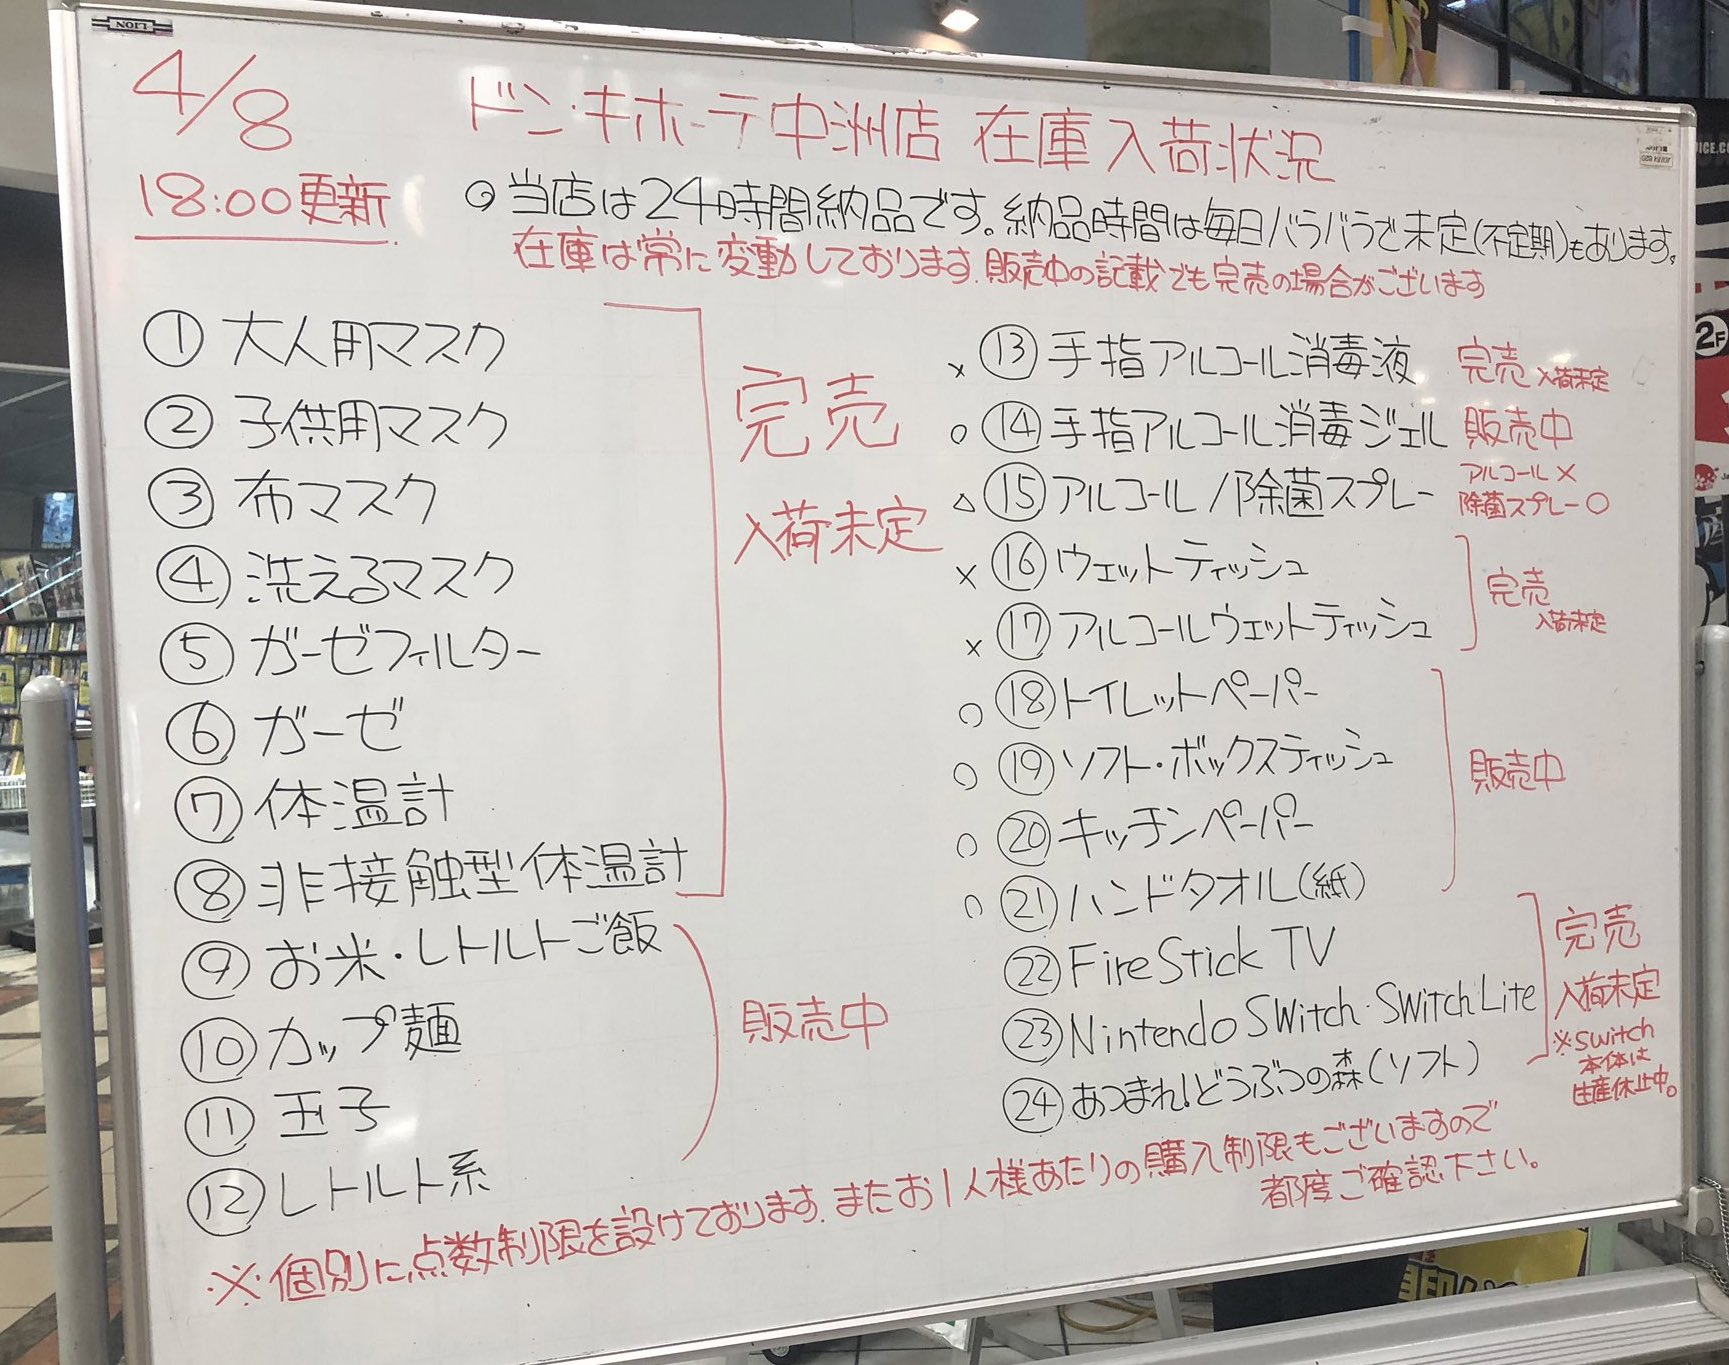 LION
4/8
18:00更新
ドン・キホーテ中洲店 在庫入荷状況
◎当店は24時間納品です。納品時間は毎日バラバラで未定(不定期)もあります。
在庫は常に変動しております。販売中の記載でも完売の場合がございます
① 大人用マスク
② 子供用マスク
③ 布マスク
④ 洗えるマスク
⑤ ガーゼフィルター
⑥ ガーゼ
⑦ 体温計
⑧ 非接触型体温計
完売
入荷未定
⑨ お米・レトルトご飯
⑩ カップ麺
⑪ 玉子
⑫ レトルト系
販売中
× ⑬ 手指アルコール消毒液 完売 入荷未定
○ ⑭ 手指アルコール消毒ジェル 販売中
△ ⑮ アルコール/除菌スプレー アルコール× 除菌スプレー○
× ⑯ ウェットティッシュ
× ⑰ アルコールウェットティッシュ
完売
入荷未定
○ ⑱ トイレットペーパー
○ ⑲ ソフト・ボックスティッシュ
○ ⑳ キッチンペーパー
○ ㉑ ハンドタオル(紙)
販売中
㉒ FireStick TV
㉓ Nintendo Switch・Switch Lite
㉔ あつまれ!どうぶつの森(ソフト)
完売
入荷未定
※switch
本体は
生産休止中。
※個別に点数制限を設けております。またお1人様あたりの購入制限もございますので
都度ご確認下さい。
2F